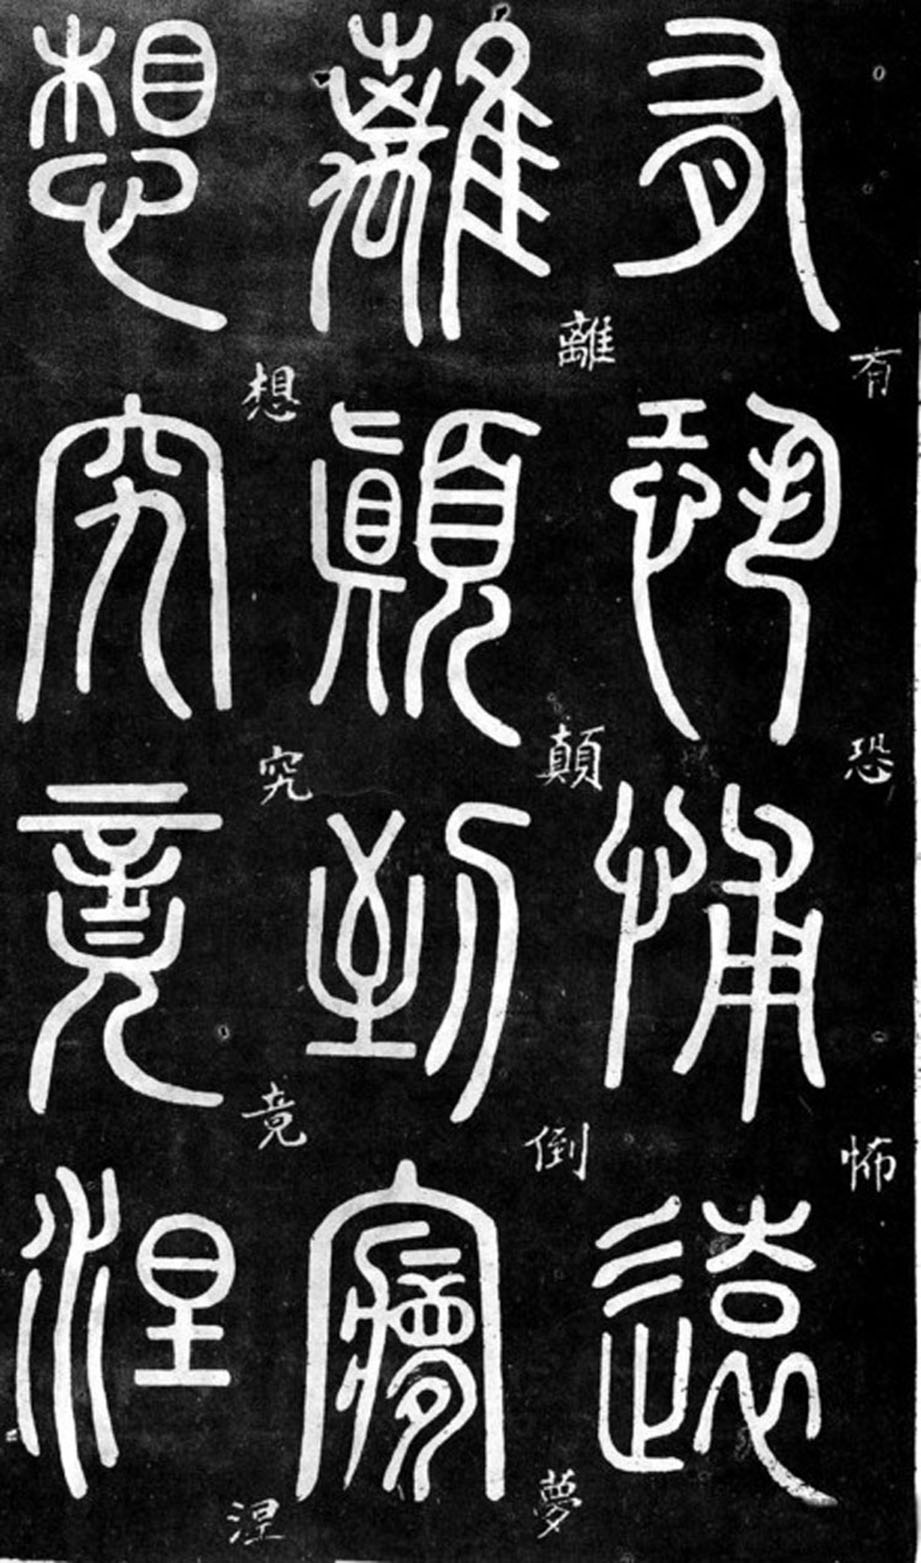 有恐怖
有恐怖遠
離顛倒夢
離顛倒夢
想究竟涅
想究竟涅